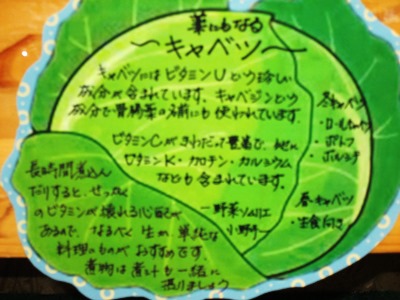 薬にもなる
〜キャベツ〜
キャベツにはビタミンUという珍しい
成分が含まれています。キャベジンという
成分で胃腸薬の名前にも使われています。
ビタミンCがきわだって豊富で、他に
ビタミンK・カロテン・カルシウム
なども含まれています。
―野菜ソムリエ
小野
長時間煮込ん
だりすると、せっかく
のビタミンが壊れる心配が
あるので、なるべく生か、単純な
料理のものがおすすめです。
煮物は煮汁も一緒に
摂りましょう
冬キャベツ
・ロールキャベツ
・ポトフ
・ボルシチ
春キャベツ
・生食向き